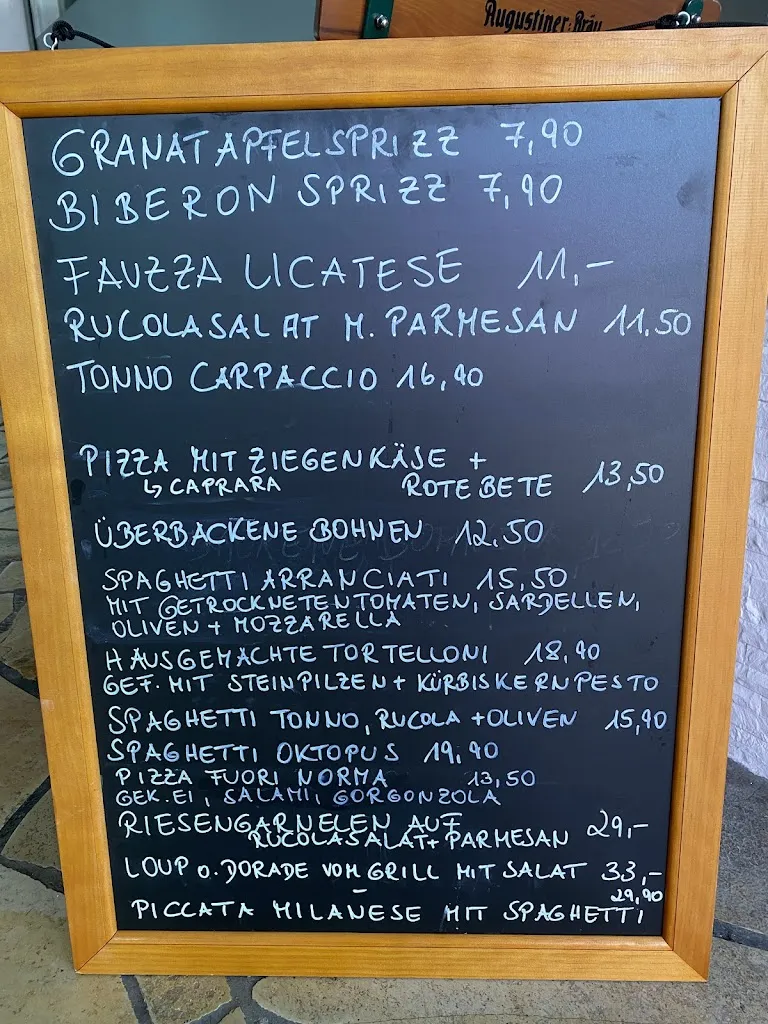 Augustiner-Bräu
GRANATAPFELSPRIZZ 7,90
BIBERON SPRIZZ 7,90
FAUZZA LICATESE 11,-
RUCOLASALAT M. PARMESAN 11,50
TONNO CARPACCIO 16,90
PIZZA MIT ZIEGENKÄSE +
↳ CAPRARA ROTE BETE 13,50
ÜBERBACKENE BOHNEN 12,50
SPAGHETTI ARRANCIATI 15,50
MIT GETROCKNETEN TOMATEN, SARDELLEN,
OLIVEN + MOZZARELLA
HAUSGEMACHTE TORTELLONI 18,90
GEF. MIT STEINPILZEN + KÜRBISKERNPESTO
SPAGHETTI TONNO, RUCOLA + OLIVEN 15,90
SPAGHETTI OKTOPUS 19,90
PIZZA FUORI NORMA 13,50
GEK. EI, SALAMI, GORGONZOLA
RIESENGARNELEN AUF
RUCOLASALAT + PARMESAN 29,-
LOUP o. DORADE VOM GRILL MIT SALAT 33,-
29,90
PICCATA MILANESE MIT SPAGHETTI